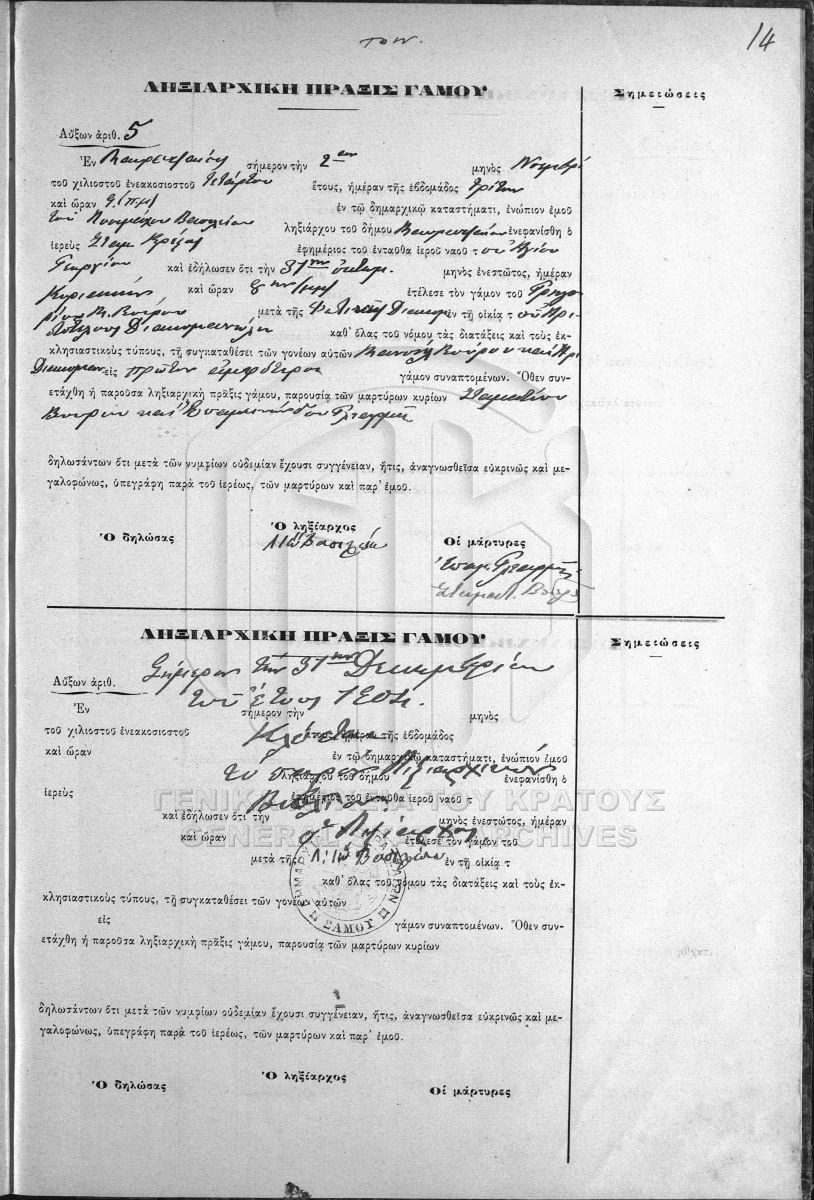 των.
14
ΛΗΞΙΑΡΧΙΚΗ ΠΡΑΞΙΣ ΓΑΜΟΥ
Σημειώσεις
Αὔξων ἀριθ. 5
Ἐν σήμερον τὴν 2αν μηνὸς Νοεμβρί
τοῦ χιλιοστοῦ ἐνεακοσιοστοῦ τετάρτου ἔτους, ἡμέραν τῆς ἑβδομάδος Τρίτην
καὶ ὥραν ἐν τῷ δημαρχικῷ καταστήματι, ἐνώπιον ἐμοῦ
τοῦ Βασιλείου ληξιάρχου τοῦ δήμου ἐνεφανίσθη ὁ
ἱερεὺς Σταμ. ἐφημέριος τοῦ ἐνταῦθα ἱεροῦ ναοῦ τοῦ Ἁγίου
Γεωργίου καὶ ἐδήλωσεν ὅτι τὴν 31ην ὀκτωμ. μηνὸς ἐνεστῶτος, ἡμέραν
Κυριακὴν καὶ ὥραν 8ην ἐτέλεσε τὸν γάμον τοῦ Γρηγο
ρίου Β. Βούρου μετὰ τῆς ἐν τῇ οἰκίᾳ τοῦ Ἀρι
καθ᾽ ὅλας τοῦ νόμου τὰς διατάξεις καὶ τοὺς ἐκ-
κλησιαστικοὺς τύπους, τῇ συγκαταθέσει τῶν γονέων αὐτῶν Βούρου καὶ Ἀρι
εἰς πρῶτον ἀμφότεροι γάμον συναπτομένων. Ὅθεν συν-
ετάχθη ἡ παροῦσα ληξιαρχικὴ πρᾶξις γάμου, παρουσίᾳ τῶν μαρτύρων κυρίων Σταματίου
Βούρου καὶ Ἐπαμινώνδου
δηλωσάντων ὅτι μετὰ τῶν νυμφίων οὐδεμίαν ἔχουσι συγγένειαν, ἥτις, ἀναγνωσθεῖσα εὐκρινῶς καὶ με-
γαλοφώνως, ὑπεγράφη παρὰ τοῦ ἱερέως, τῶν μαρτύρων καὶ παρ᾽ ἐμοῦ.
Ὁ δηλώσας
Ὁ ληξίαρχος
Οἱ μάρτυρες
Ἐπαμ.
Σταματ. Βοῦρο
ΛΗΞΙΑΡΧΙΚΗ ΠΡΑΞΙΣ ΓΑΜΟΥ
Σημειώσεις
Σήμερον τὴν 31ην Δεκεμβρίου
Αὔξων ἀριθ.
τοῦ ἔτους 1904.
Ἐν σήμερον τὴν μηνὸς
τοῦ χιλιοστοῦ ἐνεακοσιοστοῦ ἔτους, ἡμέραν τῆς ἑβδομάδος
καὶ ὥραν ἐν τῷ δημαρχικῷ καταστήματι, ἐνώπιον ἐμοῦ
τὸ παρὸν Ληξιαρχικὸν
ληξιάρχου τοῦ δήμου ἐνεφανίσθη ὁ
ἱερεὺς ἐφημέριος τοῦ ἐνταῦθα ἱεροῦ ναοῦ τ
Βιβλίον.
ΓΕΝΙΚΑ ΑΡΧΕΙΑ ΤΟΥ ΚΡΑΤΟΥΣ
καὶ ἐδήλωσεν ὅτι τὴν μηνὸς ἐνεστῶτος, ἡμέραν
GENERAL STATE ARCHIVES
ὁ Ληξίαρχος
καὶ ὥραν ἐτέλεσε τὸν γάμον τοῦ
μετὰ τῆς ἐν τῇ οἰκίᾳ τ
καθ᾽ ὅλας τοῦ νόμου τὰς διατάξεις καὶ τοὺς ἐκ-
κλησιαστικοὺς τύπους, τῇ συγκαταθέσει τῶν γονέων αὐτῶν
ΣΑΜΟΥ
εἰς γάμον συναπτομένων. Ὅθεν συν-
ετάχθη ἡ παροῦσα ληξιαρχικὴ πρᾶξις γάμου, παρουσίᾳ τῶν μαρτύρων κυρίων
δηλωσάντων ὅτι μετὰ τῶν νυμφίων οὐδεμίαν ἔχουσι συγγένειαν, ἥτις, ἀναγνωσθεῖσα εὐκρινῶς καὶ με-
γαλοφώνως, ὑπεγράφη παρὰ τοῦ ἱερέως, τῶν μαρτύρων καὶ παρ᾽ ἐμοῦ.
Ὁ δηλώσας
Ὁ ληξίαρχος
Οἱ μάρτυρες